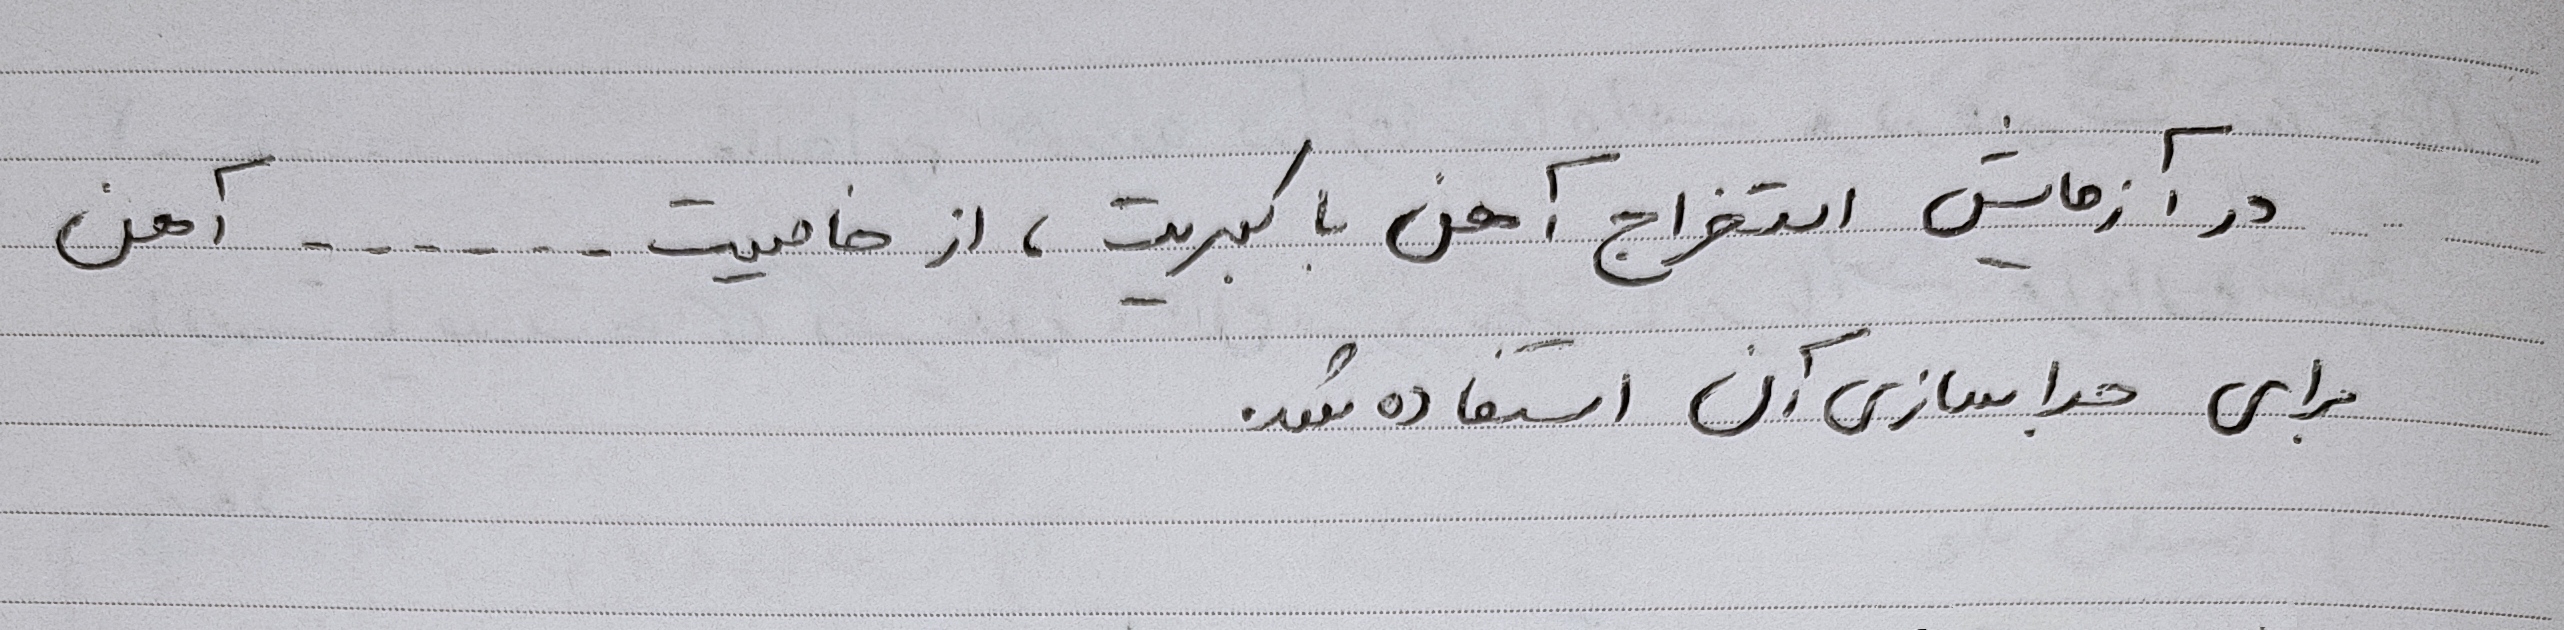 در آزمایش استخراج آهن با کبریت ، از خاصیت ------ آهن
برای جداسازی آن استفاده شد.